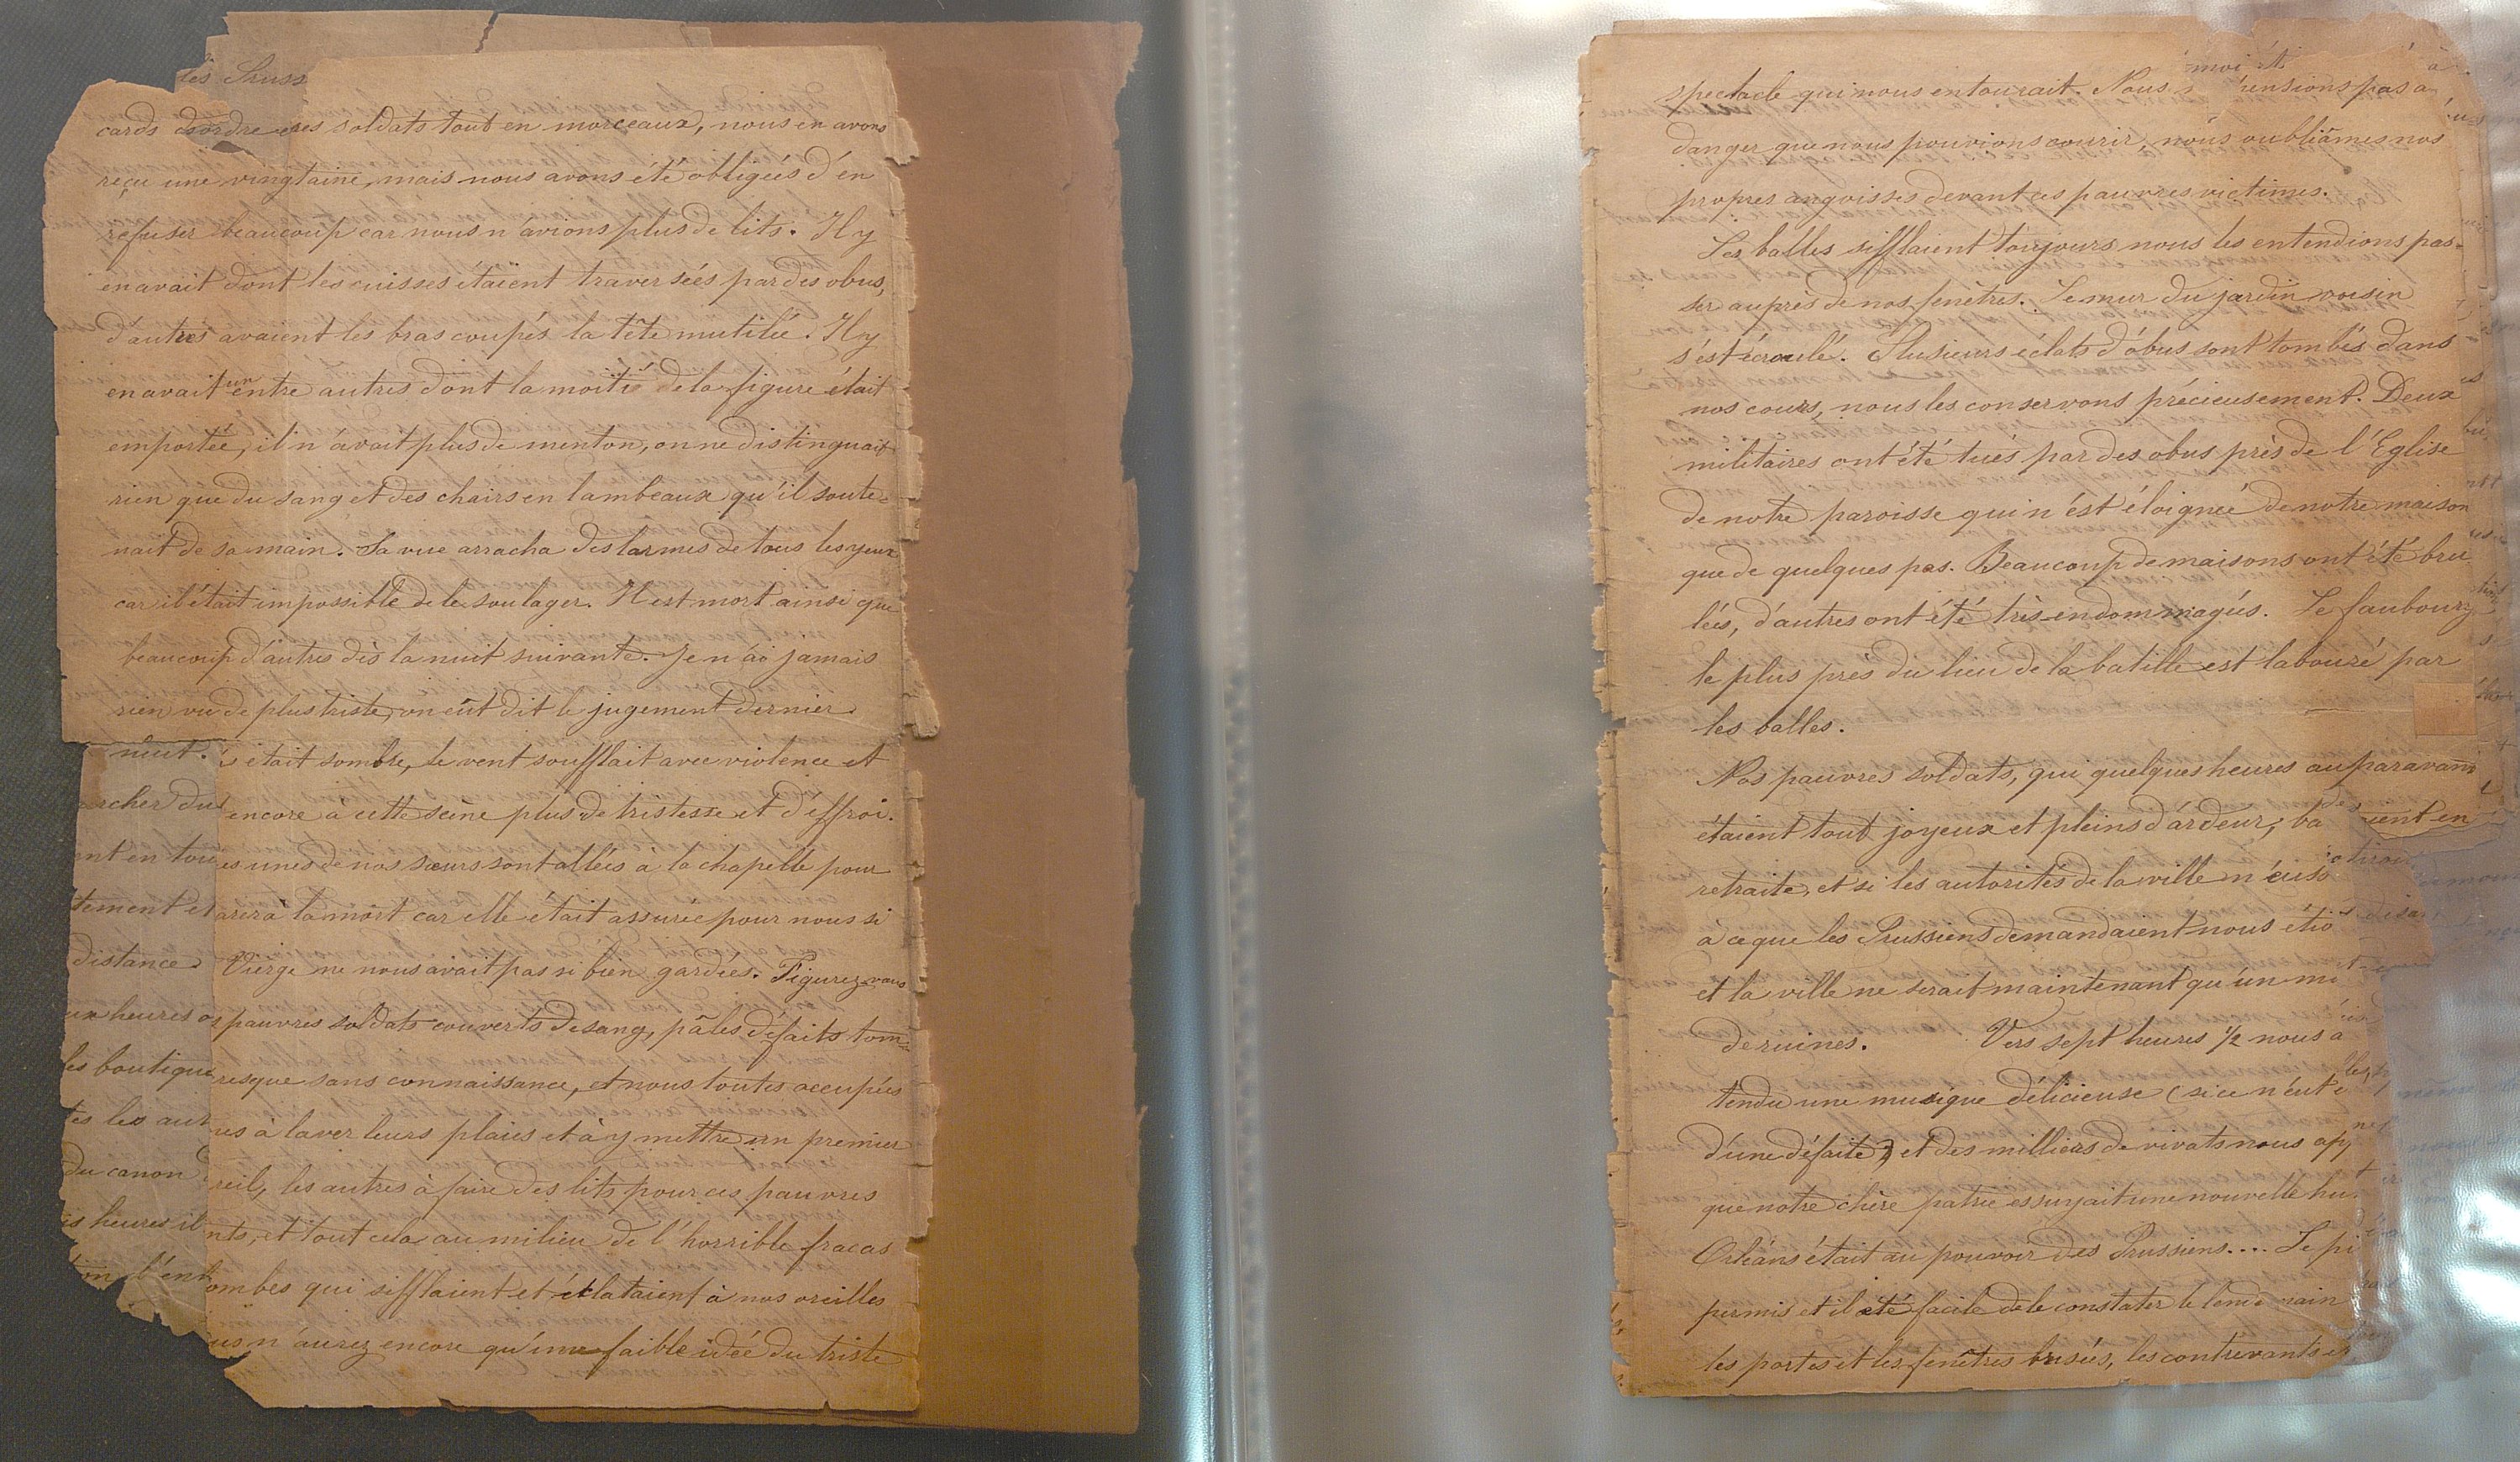 les Pruss
cards d'ordre ces soldats tout en morceaux, nous en avons
reçu une vingtaine, mais nous avons été obligées d'en
refuser beaucoup car nous n'avions plus de lits. Il y
en avait dont les cuisses étaient traversées par des obus,
d'autres avaient les bras coupés la tête mutilée. Il y
en avait un entre autres dont la moitié de la figure était
emportée, il n'avait plus de menton, on ne distinguait
rien que du sang et des chairs en lambeaux qu'il soute-
nait de sa main. Sa vue arracha des larmes de tous les yeux
car il était impossible de le soulager. Il est mort ainsi que
beaucoup d'autres dès la nuit suivante. Je n'ai jamais
rien vu de plus triste, on eût dit le jugement dernier.
nuit. s était sombre, le vent soufflait avec violence et
archer du encore à cette scène plus de tristesse et d'effroi.
nt en tou es unes de nos sœurs sont allées à la chapelle pour
tement et arer à la mort car elle était assurée pour nous si
distance Vierge ne nous avait pas si bien gardées. Figurez-vous
ux heures os pauvres soldats couverts de sang, pâles défaits tom-
les boutique resque sans connaissance, et nous toutes occupées
tes les aut es à laver leurs plaies et à y mettre un premier
du canon reil, les autres à faire des lits pour ces pauvres
is heures il nts, et tout cela au milieu de l'horrible fracas
l'ent ombes qui sifflaient et éclataient à nos oreilles
us n'aurez encore qu'une faible idée du triste
spectacle qui nous entourait. Nous ensions pas a
danger que nous pouvions courir, nous oubliâmes nos
propres angoisses devant ces pauvres victimes.
Les balles sifflaient toujours nous les entendions pas-
ser auprès de nos fenêtres. Le mur du jardin voisin
s'est écroulé. Plusieurs éclats d'obus sont tombés dans
nos cours, nous les conservons précieusement. Deux
militaires ont été tués par des obus près de l'Eglise
de notre paroisse qui n'est éloignée de notre maison
que de quelques pas. Beaucoup de maisons ont été bru
lées, d'autres ont été très-endommagés. Le faubourg
le plus près du lieu de la batille est labouré par
les balles.
Nos pauvres soldats, qui quelques heures auparavant
étaient tout joyeux et pleins d'ardeur, ba ient en
retraite, et si les autorités de la ville n'eus
a ce que les Prussiens demandaient nous étio
et la ville ne serait maintenant qu'un m
de ruines. Vers sept heures 1/2 nous a
tendu une musique délicieuse (si ce n'eut é
d'une défaite) et des milliers de vivats nous ap
que notre chère patrie essuyait une nouvelle hu
Orléans était au pouvoir des Prussiens.... Le pi
permis et il été facile de le constater le lendemain
les portes et les fenêtres brisées, les contrevants